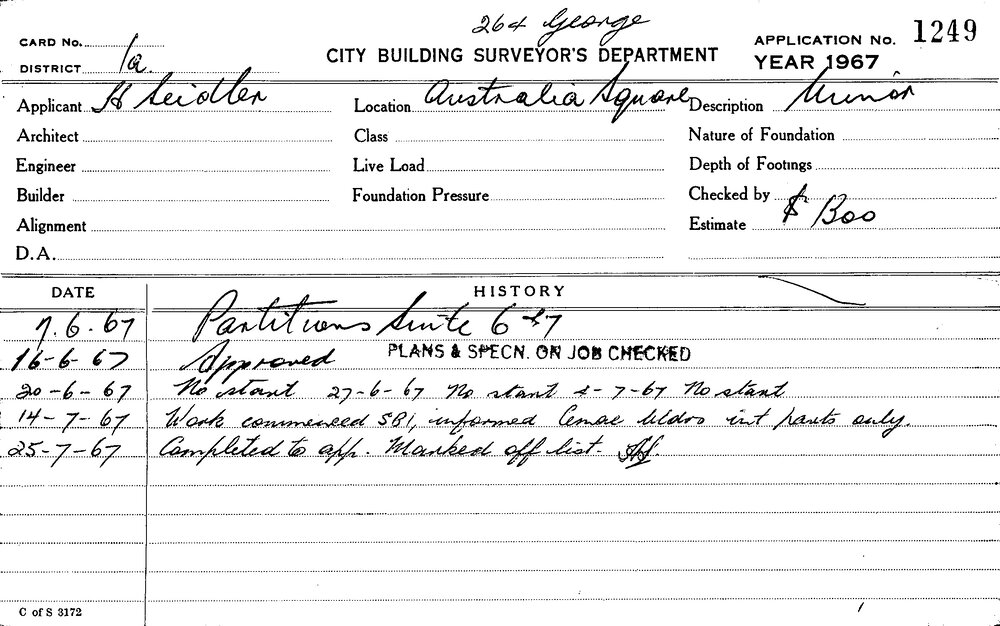 264 George
CARD No.
CITY BUILDING SURVEYOR'S DEPARTMENT
APPLICATION No. 1249
DISTRICT 1a.
YEAR 1967
Applicant H Seidler
Location Australia Square
Description Minor
Architect
Class
Nature of Foundation
Engineer
Live Load
Depth of Footings
Builder
Foundation Pressure
Checked by
Alignment
Estimate $ 800
D.A.
DATE
HISTORY
7.6.67 Partitions Suite 6 & 7
16-6-67 Approved PLANS & SPECN. ON JOB CHECKED
20-6-67 No start 27-6-67 No start 4-7-67 No start
14-7-67 Work commenced SBI, informed bldrs int parts only.
25-7-67 Completed to app. Marked off list.
C of S 3172